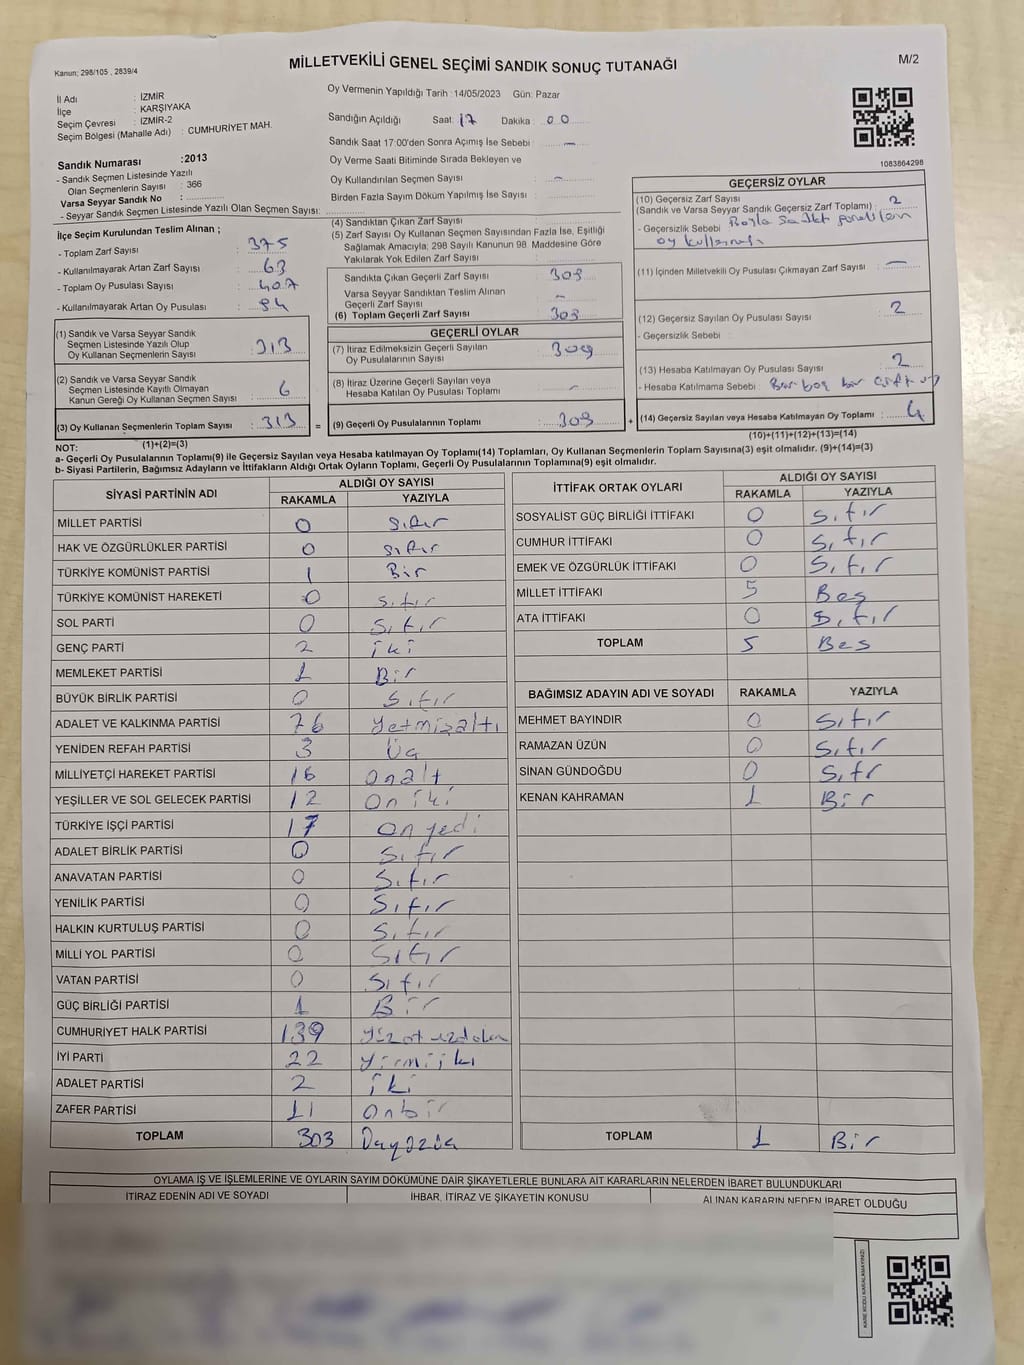 Kanun: 298/105 , 2839/4
MİLLETVEKİLİ GENEL SEÇİMİ SANDIK SONUÇ TUTANAĞI
M/2
İl Adı : İZMİR
İlçe : KARŞIYAKA
Seçim Çevresi : İZMİR-2
Seçim Bölgesi (Mahalle Adı) : CUMHURİYET MAH.
Sandık Numarası :2013
- Sandık Seçmen Listesinde Yazılı
Olan Seçmenlerin Sayısı : 366
Varsa Seyyar Sandık No :
- Seyyar Sandık Seçmen Listesinde Yazılı Olan Seçmen Sayısı:
Oy Vermenin Yapıldığı Tarih :14/05/2023 Gün: Pazar
Sandığın Açıldığı Saat: 17 Dakika : 00
Sandık Saat 17:00'den Sonra Açımış İse Sebebi : —
Oy Verme Saati Bitiminde Sırada Bekleyen ve
Oy Kullandırılan Seçmen Sayısı : —
Birden Fazla Sayım Döküm Yapılmış İse Sayısı :
1083864298
İlçe Seçim Kurulundan Teslim Alınan ;
- Toplam Zarf Sayısı : 375
- Kullanılmayarak Artan Zarf Sayısı : 63
- Toplam Oy Pusulası Sayısı : 407
- Kullanılmayarak Artan Oy Pusulası : 94
(1) Sandık ve Varsa Seyyar Sandık
Seçmen Listesinde Yazılı Olup
Oy Kullanan Seçmenlerin Sayısı : 313
(2) Sandık ve Varsa Seyyar Sandık
Seçmen Listesinde Kayıtlı Olmayan
Kanun Gereği Oy Kullanan Seçmen Sayısı : 6
(3) Oy Kullanan Seçmenlerin Toplam Sayısı : 313
(4) Sandıktan Çıkan Zarf Sayısı :
(5) Zarf Sayısı Oy Kullanan Seçmen Sayısından Fazla İse, Eşitliği
Sağlamak Amacıyla; 298 Sayılı Kanunun 98. Maddesine Göre
Yakılarak Yok Edilen Zarf Sayısı :
Sandıkta Çıkan Geçerli Zarf Sayısı : 309
Varsa Seyyar Sandıktan Teslim Alınan
Geçerli Zarf Sayısı : —
(6) Toplam Geçerli Zarf Sayısı : 303
GEÇERLİ OYLAR
(7) İtiraz Edilmeksizin Geçerli Sayılan
Oy Pusulalarının Sayısı : 309
(8) İtiraz Üzerine Geçerli Sayılan veya
Hesaba Katılan Oy Pusulası Toplamı : —
= (9) Geçerli Oy Pusulalarının Toplamı : 309
GEÇERSİZ OYLAR
(10) Geçersiz Zarf Sayısı
(Sandık ve Varsa Seyyar Sandık Geçersiz Zarf Toplamı) : 2
- Geçersizlik Sebebi : Sandık
oy
(11) İçinden Milletvekili Oy Pusulası Çıkmayan Zarf Sayısı : —
(12) Geçersiz Sayılan Oy Pusulası Sayısı : 2
- Geçersizlik Sebebi :
(13) Hesaba Katılmayan Oy Pusulası Sayısı : 2
- Hesaba Katılmama Sebebi : Bir boş bir çift oy
+ (14) Geçersiz Sayılan veya Hesaba Katılmayan Oy Toplamı : 4
(1)+(2)=(3)
(10)+(11)+(12)+(13)=(14)
NOT:
a- Geçerli Oy Pusulalarının Toplamı(9) ile Geçersiz Sayılan veya Hesaba katılmayan Oy Toplamı(14) Toplamları, Oy Kullanan Seçmenlerin Toplam Sayısına(3) eşit olmalıdır. (9)+(14)=(3)
b- Siyasi Partilerin, Bağımsız Adayların ve İttifakların Aldığı Ortak Oyların Toplamı, Geçerli Oy Pusulalarının Toplamına(9) eşit olmalıdır.
SİYASİ PARTİNİN ADI ALDIĞI OY SAYISI
RAKAMLA YAZIYLA
MİLLET PARTİSİ 0 Sıfır
HAK VE ÖZGÜRLÜKLER PARTİSİ 0 Sıfır
TÜRKİYE KOMÜNİST PARTİSİ 1 Bir
TÜRKİYE KOMÜNİST HAREKETİ 0 Sıfır
SOL PARTİ 0 Sıfır
GENÇ PARTİ 2 iki
MEMLEKET PARTİSİ 1 Bir
BÜYÜK BİRLİK PARTİSİ 0 Sıfır
ADALET VE KALKINMA PARTİSİ 76 Yetmişaltı
YENİDEN REFAH PARTİSİ 3 Üç
MİLLİYETÇİ HAREKET PARTİSİ 16 Onaltı
YEŞİLLER VE SOL GELECEK PARTİSİ 12 On iki
TÜRKİYE İŞÇİ PARTİSİ 17 On yedi
ADALET BİRLİK PARTİSİ 0 Sıfır
ANAVATAN PARTİSİ 0 Sıfır
YENİLİK PARTİSİ 0 Sıfır
HALKIN KURTULUŞ PARTİSİ 0 Sıfır
MİLLİ YOL PARTİSİ 0 Sıfır
VATAN PARTİSİ 0 Sıfır
GÜÇ BİRLİĞİ PARTİSİ 1 Bir
CUMHURİYET HALK PARTİSİ 139
İYİ PARTİ 22 Yirmiiki
ADALET PARTİSİ 2 iki
ZAFER PARTİSİ 11 Onbir
TOPLAM 303
İTTİFAK ORTAK OYLARI ALDIĞI OY SAYISI
RAKAMLA YAZIYLA
SOSYALİST GÜÇ BİRLİĞİ İTTİFAKI 0 Sıfır
CUMHUR İTTİFAKI 0 Sıfır
EMEK VE ÖZGÜRLÜK İTTİFAKI 0 Sıfır
MİLLET İTTİFAKI 5 Beş
ATA İTTİFAKI 0 Sıfır
TOPLAM 5 Beş
BAĞIMSIZ ADAYIN ADI VE SOYADI RAKAMLA YAZIYLA
MEHMET BAYINDIR 0 Sıfır
RAMAZAN ÜZÜN 0 Sıfır
SİNAN GÜNDOĞDU 0 Sıfır
KENAN KAHRAMAN 1 Bir
TOPLAM 1 Bir
OYLAMA İŞ VE İŞLEMLERİNE VE OYLARIN SAYIM DÖKÜMÜNE DAİR ŞİKAYETLERLE BUNLARA AİT KARARLARIN NELERDEN İBARET BULUNDUKLARI
İTİRAZ EDENİN ADI VE SOYADI İHBAR, İTİRAZ VE ŞİKAYETİN KONUSU ALINAN KARARIN NEDEN İBARET OLDUĞU
KARE KODU KARALAMAYINIZ!